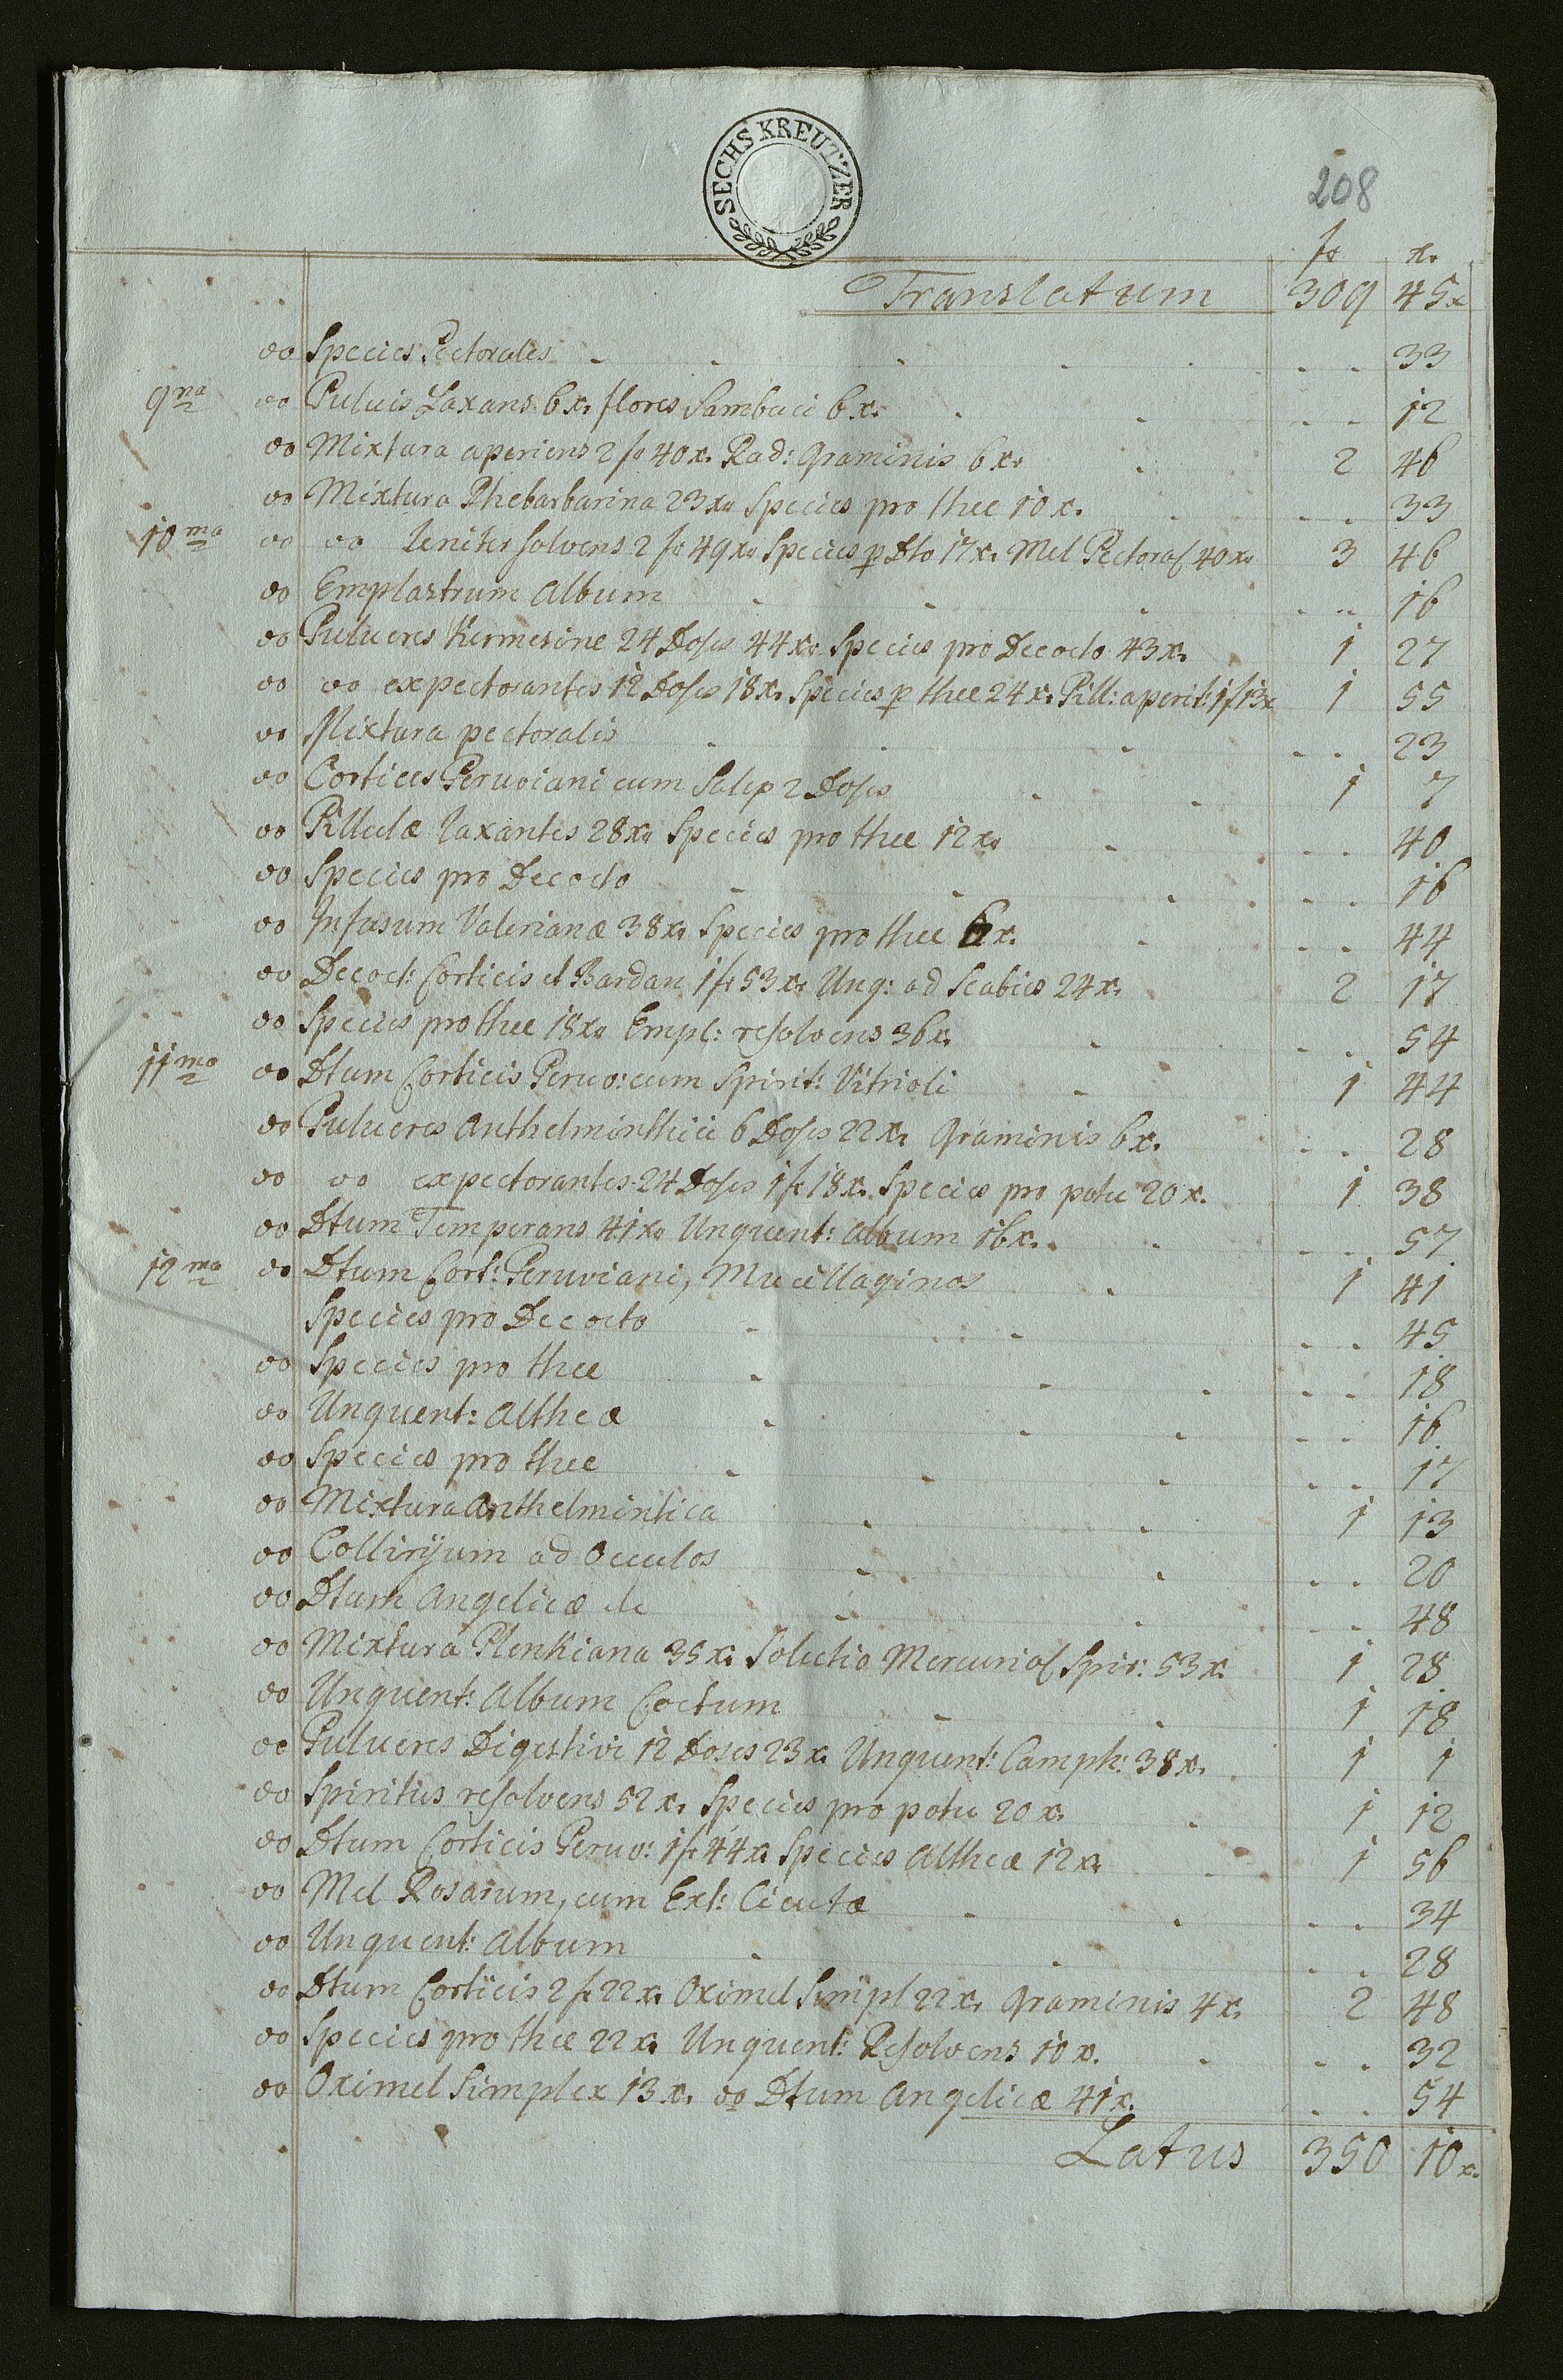 SECHS KREUTZER
208
fr xr
Translatum 309 45x
oo Species Pectorales - - - - - - 33
9na oo Puluis Laxans 6 xr flores Sambuci 6 xr - - - - 12
oo Mixtura aperiens 2 fr 40 xr Rad: Graminis 6 xr - 2 46
oo Mixtura Rhebarbarina 23 xr Species pro thee 10 x. - - - 33
10ma oo oo leniter solvens 2 fr 49 xr Species p Dto 17 xr Mel Pectoral 40 xr 3 46
oo Emplastrum Album - - - - - 16
oo Pulueres Kermesine 24 Doses 44 xr Species pro Decocto 43 xr 1 27
oo oo expectorantes 12 Doses 18 xr Species p thee 24 xr Pill: aperit: 1 f 13x 1 55
oo Mixtura pectoralis - - - - - 23
oo Cortices Peruviani cum Salep 2 Doses - - 1 7
oo Pillulæ laxantes 28 xr Species pro thee 12 xr - - - 40
oo Species pro Decocto - - - - - 16
oo Infusum Valerianæ 38 xr Species pro thee 6 x. - - - 44
oo Decoct: Corticis et Bardan 1 fr 53 xr Ung: ad Scabies 24 xr 2 17
oo Species pro thee 18 xr Empl: resolvens 36 xr - - - 54
11ma oo Dtum Corticis Peruv: cum Spirit: Vitrioli - 1 44
oo Pulueres Anthelminthici 6 Doses 22 xr Graminis 6 x. - - 28
oo oo expectorantes 24 Doses 1 fr 18 x. Species pro potu 20 x. 1 38
oo Dtum Temperans 41 xr Unguent: Album 16 x. - - - 57
12ma oo Dtum Cort: Peruviani, Mucillaginos - 1 41
Species pro Decocto - - - - 45
oo Species pro thee - - - - - 18
oo Unguent: Altheæ - - - - - 16
oo Species pro thee - - - - - 17
oo Mixtura Anthelmintica - - 1 13
oo Collirÿum ad Occulos - - - - 20
oo Dtum Angelicæ de - - - - 48
oo Mixtura Plenkiana 35 xr Solutio Mercurial Spir: 53 x. 1 28
oo Unguent: Album Coctum - - 1 18
oo Pulueres Digestivi 12 Doses 23 x. Unguent: Camph: 38 x. 1 1
oo Spiritus resolvens 52 x. Species pro potu 20 x. - 1 12
oo Dtum Corticis Peruv: 1 fr 44 x. Species Altheæ 12 x. - 1 56
oo Mel Rosarum, cum Ext: Cicutæ - - - - 34
oo Unguent: Album - - - - 28
oo Dtum Corticis 2 fr 22 x. Oximel Simpl 22 x. Graminis 4 x. 2 48
oo Species pro thee 22 x. Unguent: Resolvens 10 x. - - - 32
oo Oximel Simplex 13 x. oo Dtum Angelicæ 41 x. - - 54
Latus 350 10x.